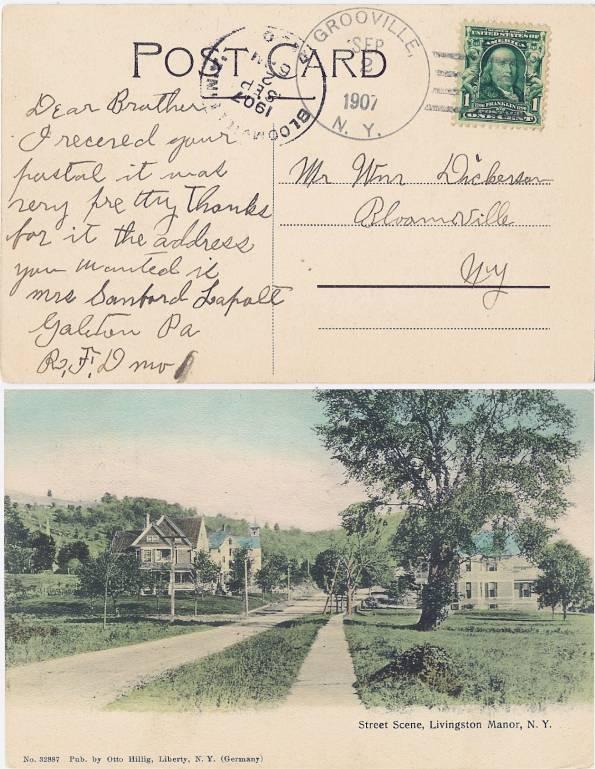 POST CARD
GROOVILLE,
SEP
2
1907
N. Y.
SEP
1907
UNITED STATES OF AMERICA
1 FRANKLIN 1
ONE CENT
Dear Brother
I recered your
postal it was
very pretty Thanks
for it the address
you wanted is
mrs Sanford Lapolt
Galeton Pa
R.F.D no 1
Mr Wm Dickerson
Bloomville
NY
Street Scene, Livingston Manor, N. Y.
No. 32887 Pub. by Otto Hillig, Liberty, N. Y. (Germany)